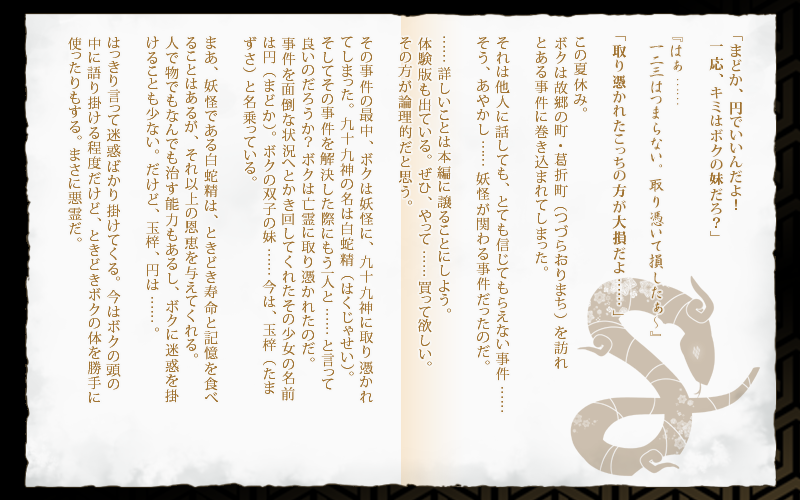 「まどか、円でいいんだよ！
一応、キミはボクの妹だろ？」
『はぁ……
一二三はつまらない。取り憑いて損したぁ～』
「取り憑かれたこっちの方が大損だよ……」
この夏休み。
ボクは故郷の町・葛折町（つづらおりまち）を訪れ
とある事件に巻き込まれてしまった。
それは他人に話しても、とても信じてもらえない事件……
そう、あやかし……妖怪が関わる事件だったのだ。
……詳しいことは本編に譲ることにしよう。
体験版も出ている。ぜひ、やって……買って欲しい。
その方が論理的だと思う。
その事件の最中、ボクは妖怪に、九十九神に取り憑かれ
てしまった。九十九神の名は白蛇精（はくじゃせい）。
そしてその事件を解決した際にもう一人と……と言って
良いのだろうか？ボクは亡霊に取り憑かれたのだ。
事件を面倒な状況へとかき回してくれたその少女の名前
は円（まどか）。ボクの双子の妹……今は、玉梓（たま
ずさ）と名乗っている。
まあ、妖怪である白蛇精は、ときどき寿命と記憶を食べ
ることはあるが、それ以上の恩恵を与えてくれる。
人で物でもなんでも治す能力もあるし、ボクに迷惑を掛
けることも少ない。だけど、玉梓、円は……。
はっきり言って迷惑ばかり掛けてくる。今はボクの頭の
中に語り掛ける程度だけど、ときどきボクの体を勝手に
使ったりもする。まさに悪霊だ。